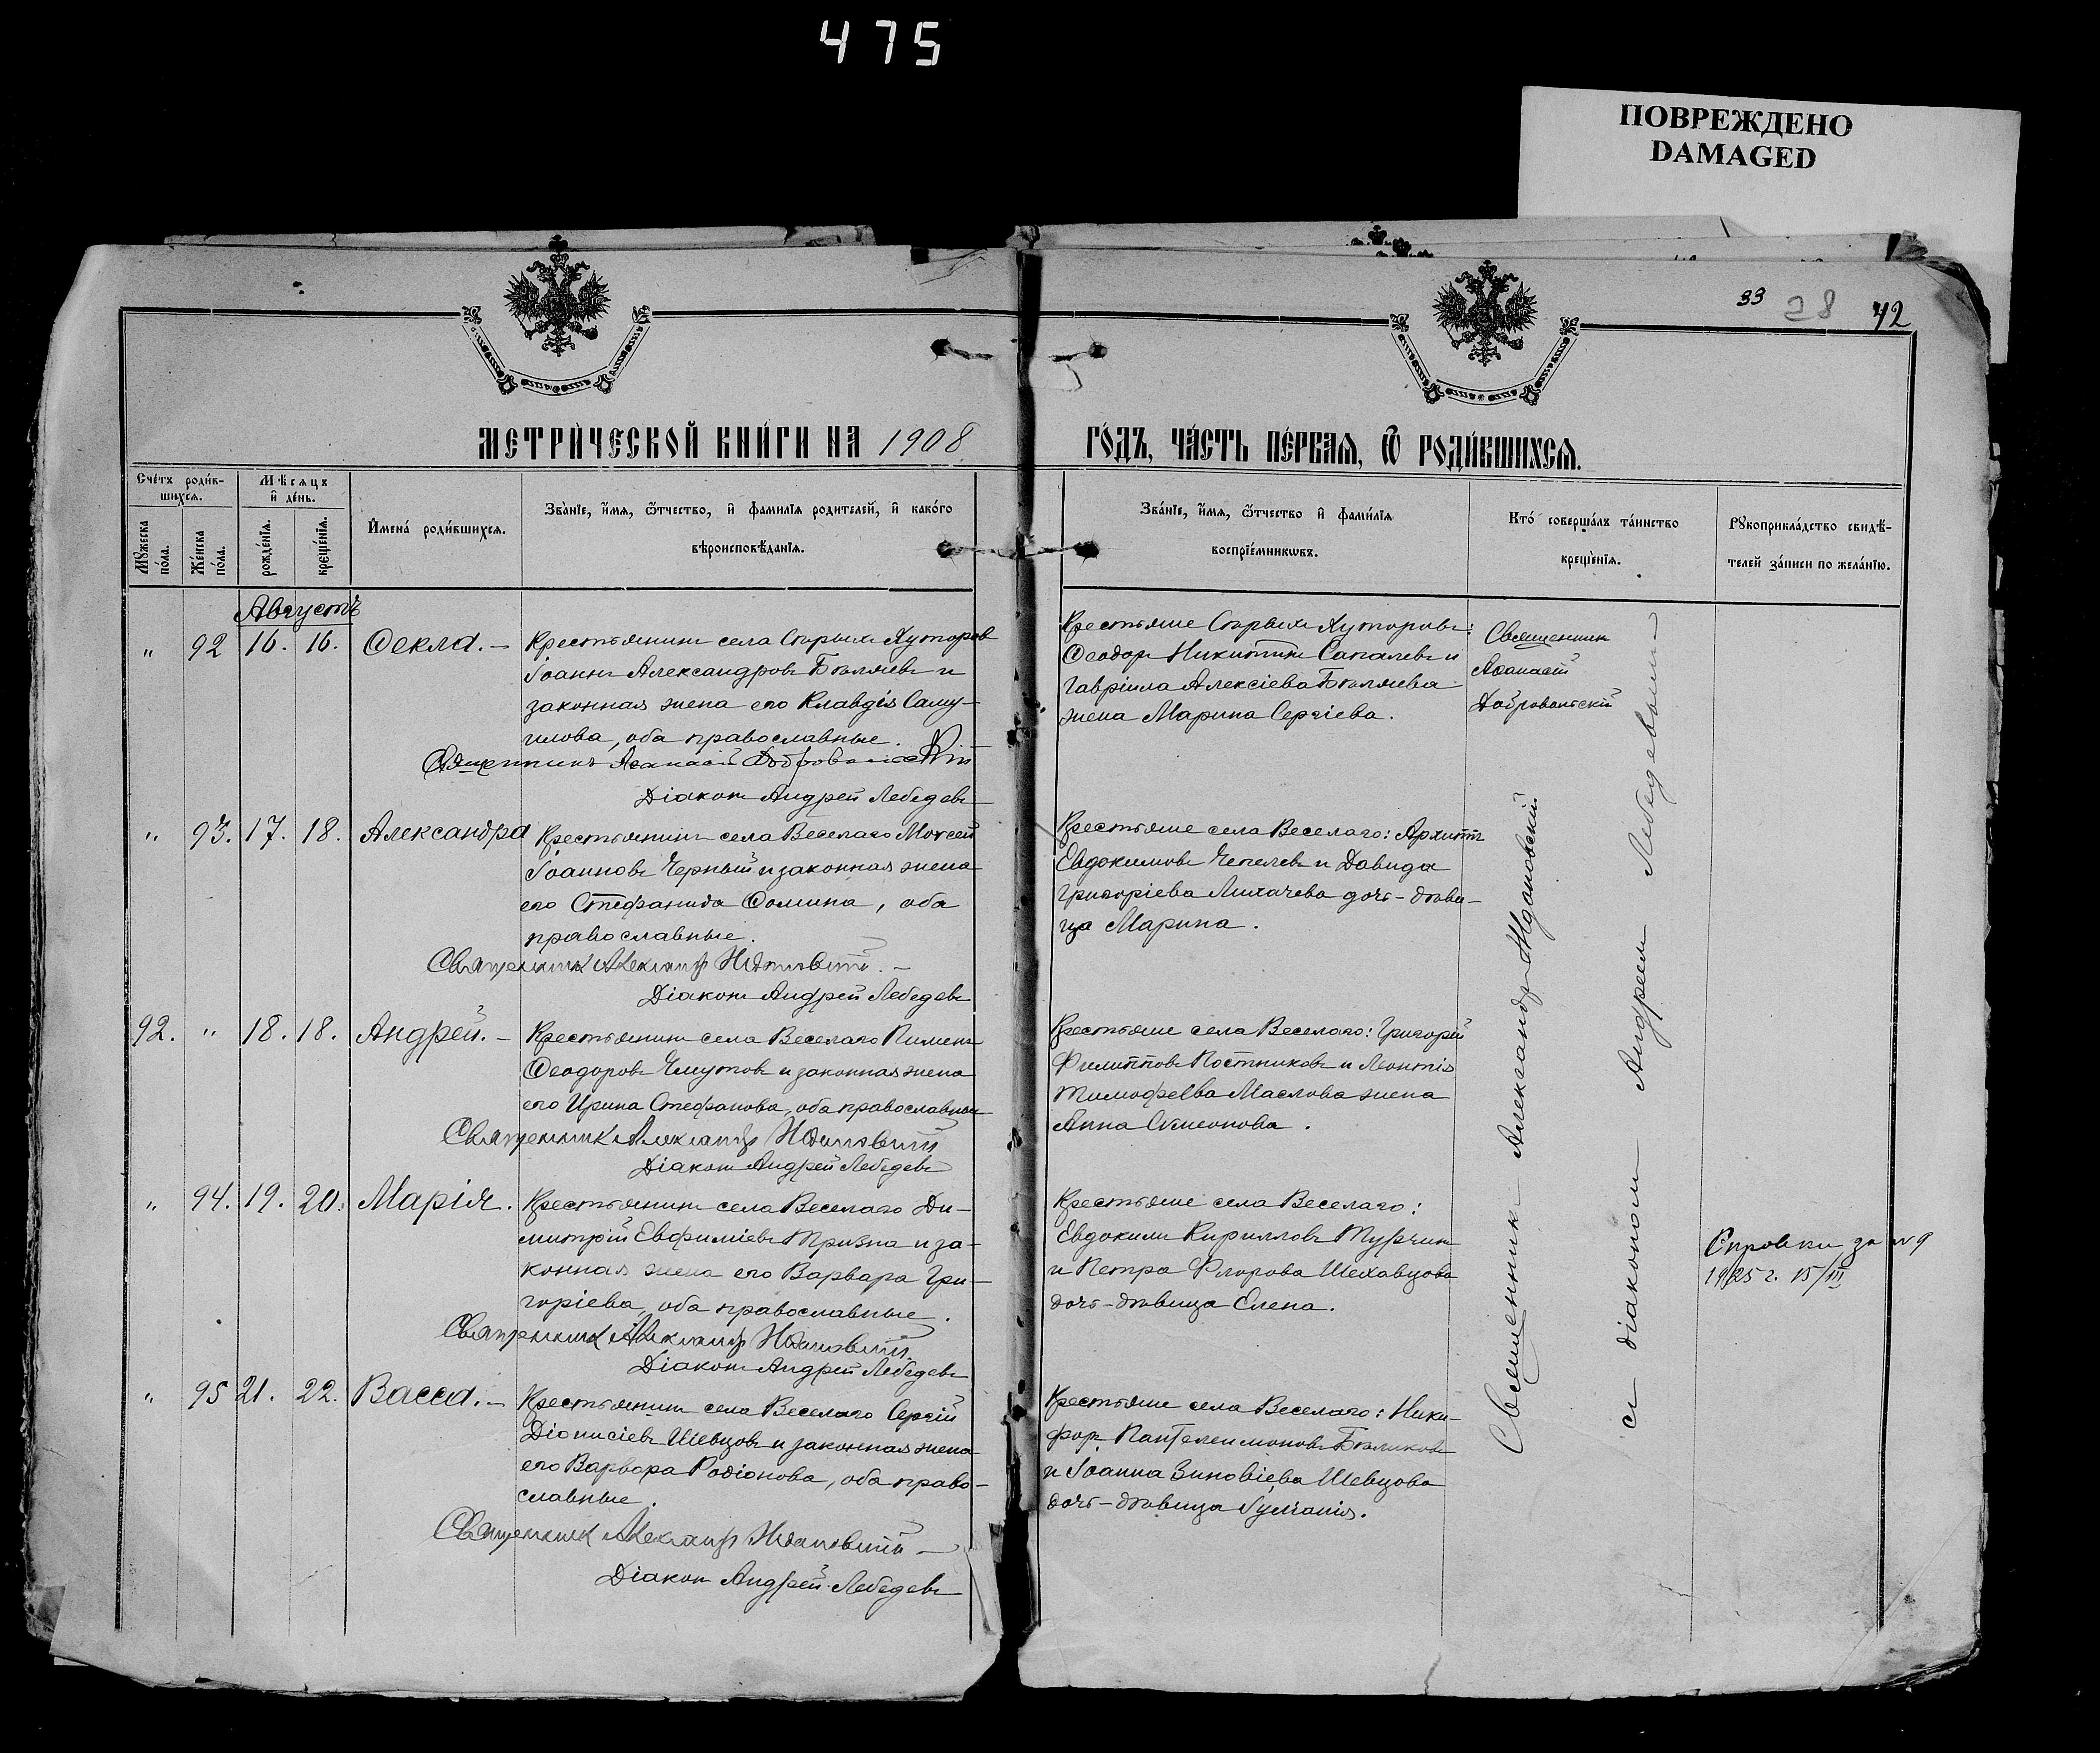 475
ПОВРЕЖДЕНО
DAMAGED
33 28 42
МЕТРИ́ЧЕСКОЙ КНИ́ГИ НА 1908
ГО́ДЪ, ЧА́СТЬ ПЕ́РВАЯ, Ѽ РОДИ́ВШИХСЯ.
Сче́тъ роди́в-
шихся.
Мѣ́сяцъ
и̂ де́нь.
Мꙋ́жеска
по́ла.
Же́нска
по́ла.
рожде́нїя.
креще́нїя.
И̂мена́ роди́вшихся.
Зва́нїе, и҆́мя, ѻ҆́тчество, и҆ фами́лїя родителей, и҆ како́го
вѣроисповѣ́данїя.
Зва́нїе, и҆́мя, ѻ҆́тчество и҆ фами́лїя
воспрїе́мникѡвъ.
Кто́ соверша́лъ та́инство
креще́нїя.
Рꙋкоприкла́дство свидѣ́-
телей за́писи по жела́нїю.
Августъ
" 92 16. 16. Ѳекла. –
Крестьянинъ села Старыхъ Хуторовъ
Іоаннъ Александровъ Бѣляевъ и
законная жена его Клавдія Саму-
илова, оба православные.
Священникъ Аѳанасій Добровольскій
Діаконъ Андрей Лебедевъ
Крестьяне Старыхъ Хуторовъ:
Ѳеодоръ Никитинъ Сапалевъ и
Гавріила Алексіева Бѣляева
жена Марина Сергіева.
Священникъ
Аѳанасій
Добровольскій
" 93. 17. 18. Александра
Крестьянинъ села Веселаго Моѵсей
Іоанновъ Черный и законная жена
его Стефанида Ѳомина, оба
православные.
Священникъ Александръ Ждановскій. –
Діаконъ Андрей Лебедевъ
Крестьяне села Веселаго: Архиппъ
Евдокимовъ Чепелевъ и Давида
Григоріева Лихачева дочь-дѣви-
ца Марина.
92. " 18. 18. Андрей. –
Крестьянинъ села Веселаго Пименъ
Ѳеодоровъ Чмутовъ и законная жена
его Ирина Стефанова, оба православные
Священникъ Александръ Ждановскій
Діаконъ Андрей Лебедевъ
Крестьяне села Веселаго: Григорій
Филипповъ Постниковъ и Леонтія
Тимофеева Маслова жена
Анна Симеонова.
" 94. 19. 20. Марія.
Крестьянинъ села Веселаго Ди-
митрій Евфиміевъ Тризна и за-
конная жена его Варвара Гри-
горіева, оба православные.
Священникъ Александръ Ждановскій.
Діаконъ Андрей Лебедевъ
Крестьяне села Веселаго:
Евдокимъ Кирилловъ Турчинъ
и Петра Флорова Шехавцова
дочь-дѣвица Елена.
Справка за №9
1925 г. 15/III
" 95 21. 22. Васса. –
Крестьянинъ села Веселаго Сергій
Діонисіевъ Шевцовъ и законная жена
его Варвара Родіонова, оба право-
славные.
Священникъ Александръ Ждановскій –
Діаконъ Андрей Лебедевъ
Крестьяне села Веселаго: Ники-
форъ Пантелеимоновъ Бѣликовъ
и Іоанна Зиновіева Шевцова
дочь-дѣвица Іуліанія.
Священникъ Александръ Ждановскій
съ діакономъ Андреемъ Лебедевымъ